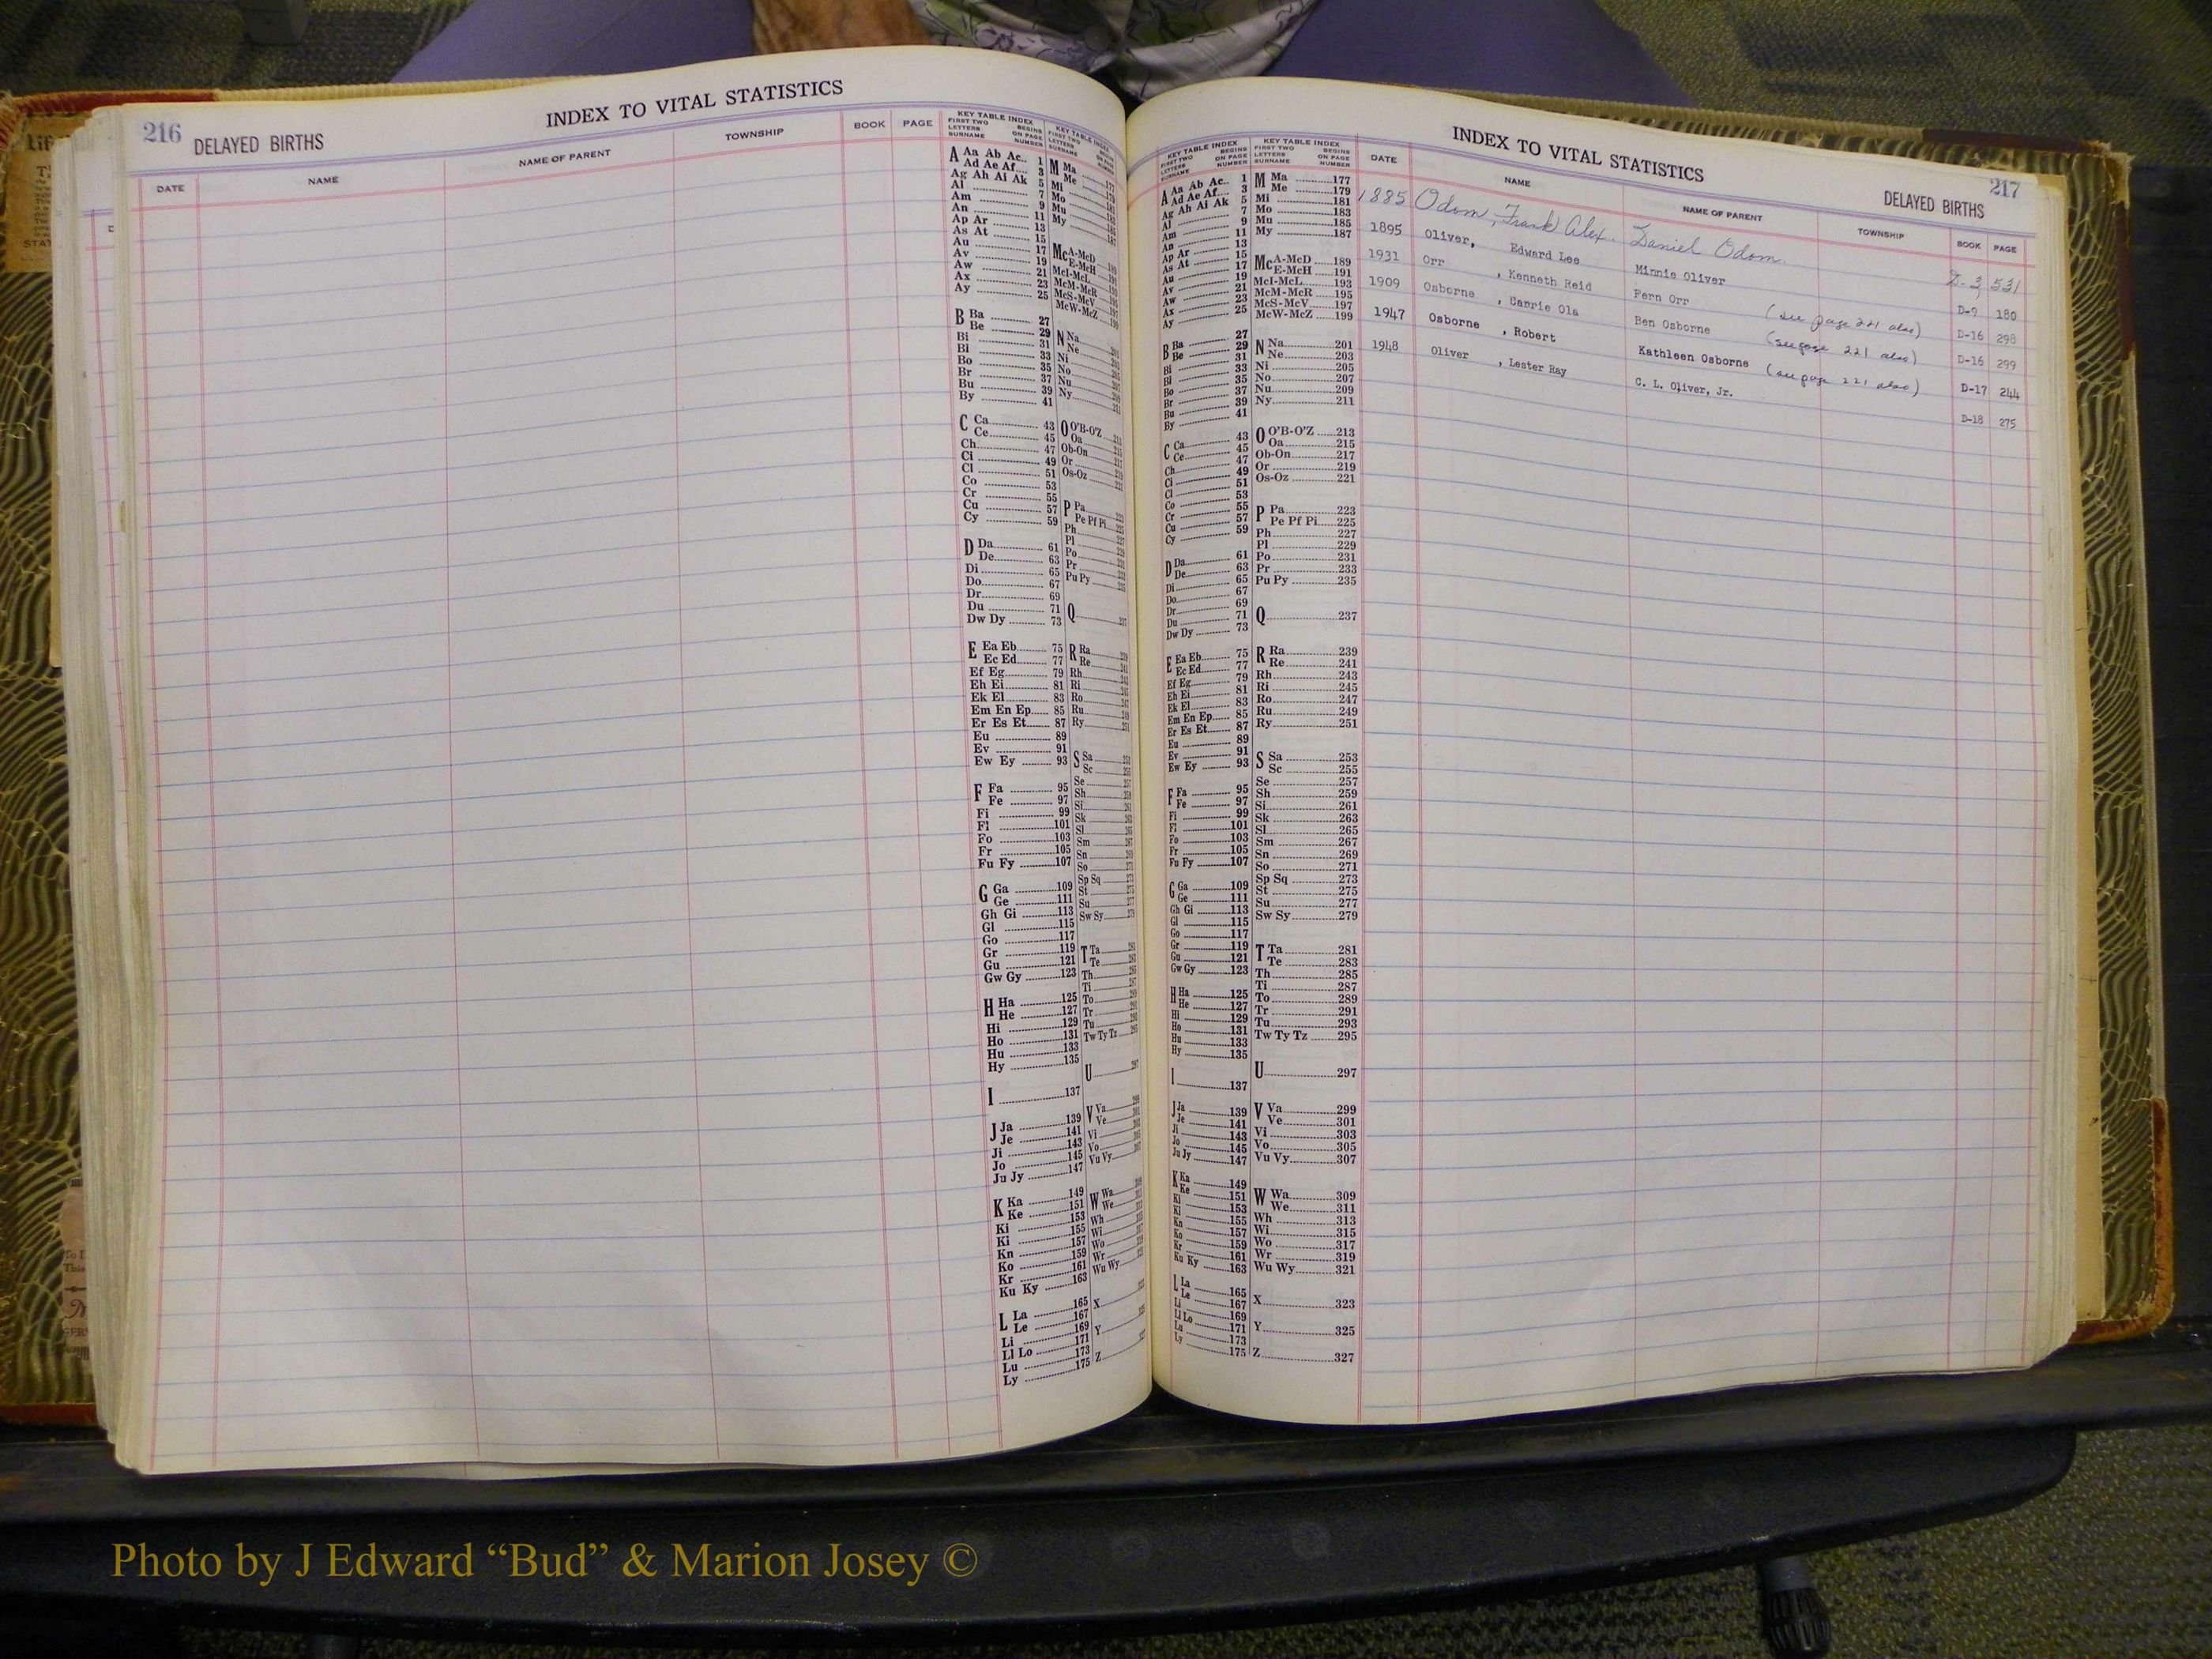 216
DELAYED BIRTHS
INDEX TO VITAL STATISTICS
DATE NAME NAME OF PARENT TOWNSHIP BOOK PAGE
KEY TABLE INDEX
FIRST TWO LETTERS SURNAME BEGINS ON PAGE NUMBER
A Aa Ab Ac 1
Ad Ae Af 3
Ag Ah Ai Ak 5
Al 7
Am 9
An 11
Ap Ar 13
As At 15
Au 17
Av 19
Aw 21
Ax 23
Ay 25
B Ba 27
Be 29
Bi 31
Bl 33
Bo 35
Br 37
Bu 39
By 41
C Ca 43
Ce 45
Ch 47
Ci 49
Cl 51
Co 53
Cr 55
Cu 57
Cy 59
D Da 61
De 63
Di 65
Do 67
Dr 69
Du 71
Dw Dy 73
E Ea Eb 75
Ec Ed 77
Ef Eg 79
Eh Ei 81
Ek El 83
Em En Ep 85
Er Es Et 87
Eu 89
Ev 91
Ew Ey 93
F Fa 95
Fe 97
Fi 99
Fl 101
Fo 103
Fr 105
Fu Fy 107
G Ga 109
Ge 111
Gh Gi 113
Gl 115
Go 117
Gr 119
Gu 121
Gw Gy 123
H Ha 125
He 127
Hi 129
Ho 131
Hu 133
Hy 135
I 137
J Ja 139
Je 141
Ji 143
Jo 145
Ju Jy 147
K Ka 149
Ke 151
Ki 153
Ki 155
Kn 157
Ko 159
Kr 161
Ku Ky 163
L La 165
Le 167
Li 169
Ll Lo 171
Lu 173
Ly 175
INDEX TO VITAL STATISTICS
217
DELAYED BIRTHS
KEY TABLE INDEX
FIRST TWO LETTERS SURNAME BEGINS ON PAGE NUMBER
M Ma 177
Me 179
Mi 181
Mo 183
Mu 185
My 187
McA-McD 189
E-McH 191
McI-McL 193
McM-McR 195
McS-McV 197
McW-McZ 199
N Na 201
Ne 203
Ni 205
No 207
Nu 209
Ny 211
O O'B-O'Z 213
Oa 215
Ob-On 217
Or 219
Os-Oz 221
P Pa 223
Pe Pf Pi 225
Ph 227
Pl 229
Po 231
Pr 233
Pu Py 235
Q 237
R Ra 239
Re 241
Rh 243
Ri 245
Ro 247
Ru 249
Ry 251
S Sa 253
Sc 255
Se 257
Sh 259
Si 261
Sk 263
Sl 265
Sm 267
Sn 269
So 271
Sp Sq 273
St 275
Su 277
Sw Sy 279
T Ta 281
Te 283
Th 285
Ti 287
To 289
Tr 291
Tu 293
Tw Ty Tz 295
U 297
V Va 299
Ve 301
Vi 303
Vo 305
Vu Vy 307
W Wa 309
We 311
Wh 313
Wi 315
Wo 317
Wr 319
Wu Wy 321
X 323
Y 325
Z 327
DATE NAME NAME OF PARENT TOWNSHIP BOOK PAGE
1885 Odom, Frank Alex. Daniel Odom. D-3 531
1895 Oliver, Edward Lee Minnie Oliver D-9 180
1931 Orr , Kenneth Reid Fern Orr (see page 221 also) D-16 298
1909 Osborne , Carrie Ola Ben Osborne (see page 221 also) D-16 299
1947 Osborne , Robert Kathleen Osborne (see page 221 also) D-17 244
1948 Oliver , Lester Ray C. L. Oliver, Jr. D-18 275
Photo by J Edward “Bud” & Marion Josey ©